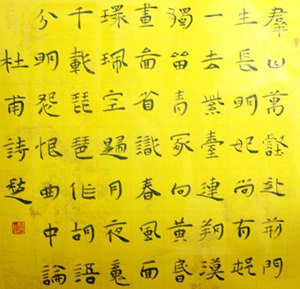 羣山萬壑赴荊門
生長明妃尚有邨
一去紫臺連朔漠
獨留青冢向黃昏
畫啚省識春風面
環珮空歸月夜魂
千載琵琶作胡語
分明怨恨曲中論
杜甫詩